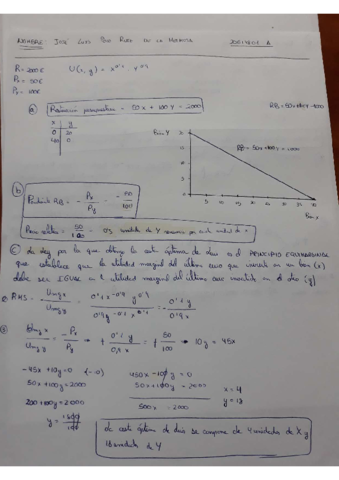 NOMBRE: José Luis
R = 2000€ U(x, y) = x^0'1 · y^0'9
Px = 50€
Py = 100€
a) Restricción presupuestaria = 50x + 100y = 2000
RB = 50x + 100y = 2000
x y
0 20
400 0
Bien Y
RB = 50x + 100y = 2000
Bien x
b) Pendiente RB = - Px/Py = - 50/100
50/100 = 0'5 unidades de Y por cada unidad de x
c) La ley por la que obtengo la cesta óptima de Luis es el PRINCIPIO EQUIMARGINAL
que establece que la utilidad marginal del último euro que invierte en un bien (x)
debe ser IGUAL a la utilidad marginal del último euro invertido en el otro (y)
RMS = - Umgx/Umgy = - 0'1 x^-0'9 y^0'9 / 0'9 y^-0'1 x^0'1 = - 0'1 y / 0'9 x
Umgx/Umgy = - Px/Py 0'1 y / 0'9 x = 50/100 → 10y = 45x
-45x + 10y = 0 (-10) 450x - 100y = 0
50x + 100y = 2000 50x + 100y = 2000
500x = 2000
x = 4
y = 18
200 + 100y = 2000
y = 1800/100
La cesta óptima de Luis se compone de 4 unidades de X y
18 unidades de Y